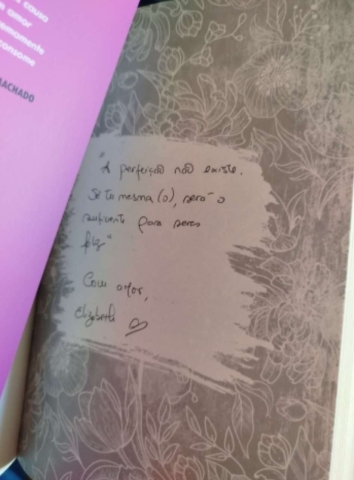 cousa
amor
consome
MACHADO
"A perfeição não existe.
Sê tu mesma (o), será o
suficiente para seres
feliz"
Com amor,
Elizabeth